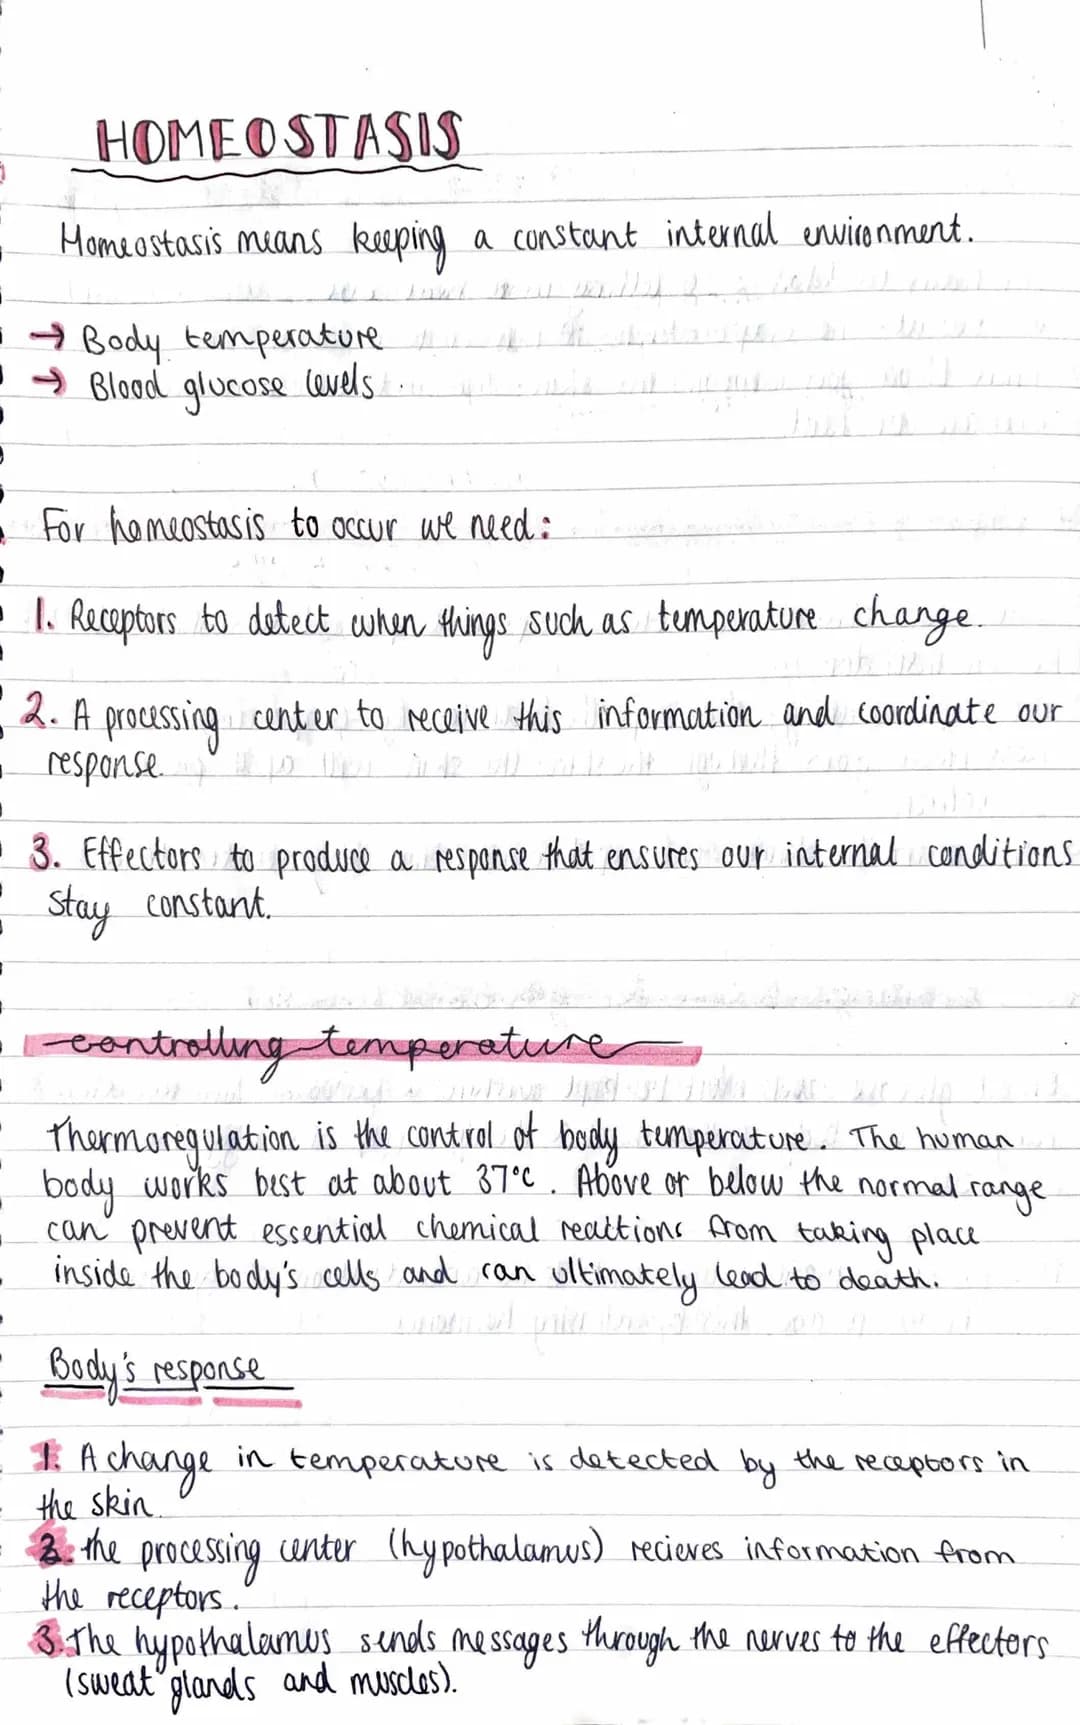 HOMEOSTASIS
Homeostasis means keeping a constant internal environment.
→ Body temperature
→ Blood glucose levels.
For homeostasis to occur we need:
1. Receptors to detect when things such as temperature change.
2. A processing center to receive this information and coordinate our
response.
3. Effectors to produce a response that ensures our internal conditions
stay constant.
controlling temperature
Thermoregulation is the control of body temperature. The human
body works best at about 37°C. Above or below the normal range
can prevent essential chemical reactions from taking place
inside the body's cells and can ultimately lead to death.
Body's response
1. A change in temperature is detected by the receptors in
the skin.
2. the processing center (hypothalamus) recieves information from
the receptors.
3. The hypothalamus sends messages through the nerves to the effectors
(sweat glands and muscles).